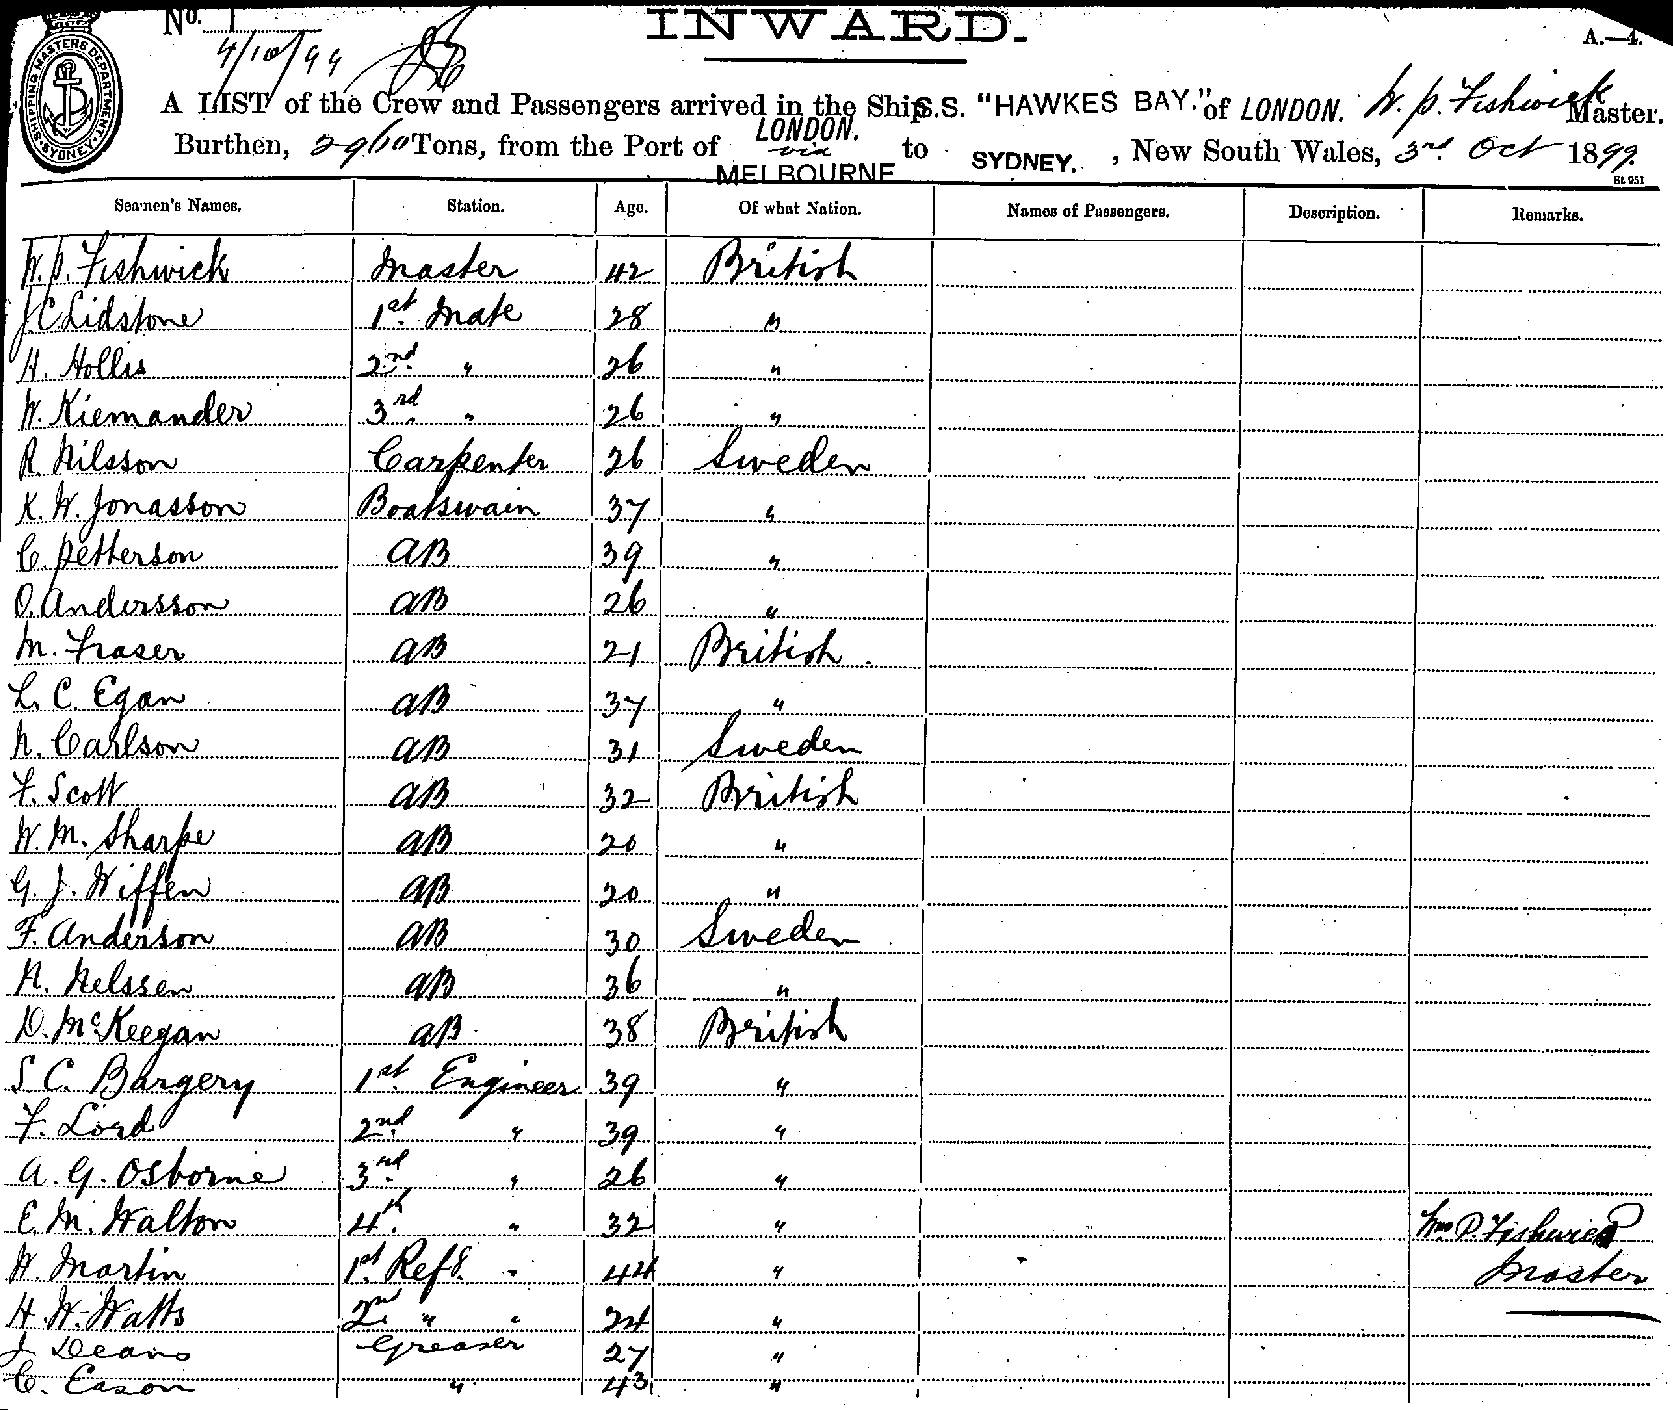 No. 1
INWARD.
A.—4.
4/10/99
SHIPPING MASTERS DEPARTMENT SYDNEY
A LIST of the Crew and Passengers arrived in the Ship S.S. "HAWKES BAY." of LONDON. W. P. Fishwick Master.
Burthen, 2960 Tons, from the Port of LONDON. via MELBOURNE to SYDNEY. , New South Wales, 3rd Oct 1899.
Seamen's Names. Station. Age. Of what Nation. Names of Passengers. Description. Remarks.
W. P. Fishwick Master 42 British
J C Lidstone 1st. Mate 28 "
H. Hollis 2nd. " 26 "
W. Kiemander 3rd. " 26 "
R. Nilsson Carpenter 26 Sweden
K. W. Jonasson Boatswain 37 "
C. Petterson AB 39 "
O. Andersson AB 26 "
M. Fraser AB 21 British
L. C. Egan AB 37 "
N. Carlson AB 31 Sweden
F. Scott AB 32 British
W. M. Sharpe AB 20 "
G. J. Wiffen AB 20 "
F. Anderson AB 30 Sweden
N. Nelssen AB 36 "
D. McKeegan AB 38 British
S C. Bargery 1st. Engineer 39 "
F. Lord 2nd. " 39 "
A. G. Osborne 3rd. " 26 "
E. M. Walton 4th. " 32 " Wm P. Fishwick
W. Martin 1st. Refg. " 44 " Master
H. W. Watts 2n " " 24 "
J Deans Greaser 27 "
C. Eason " 43 "